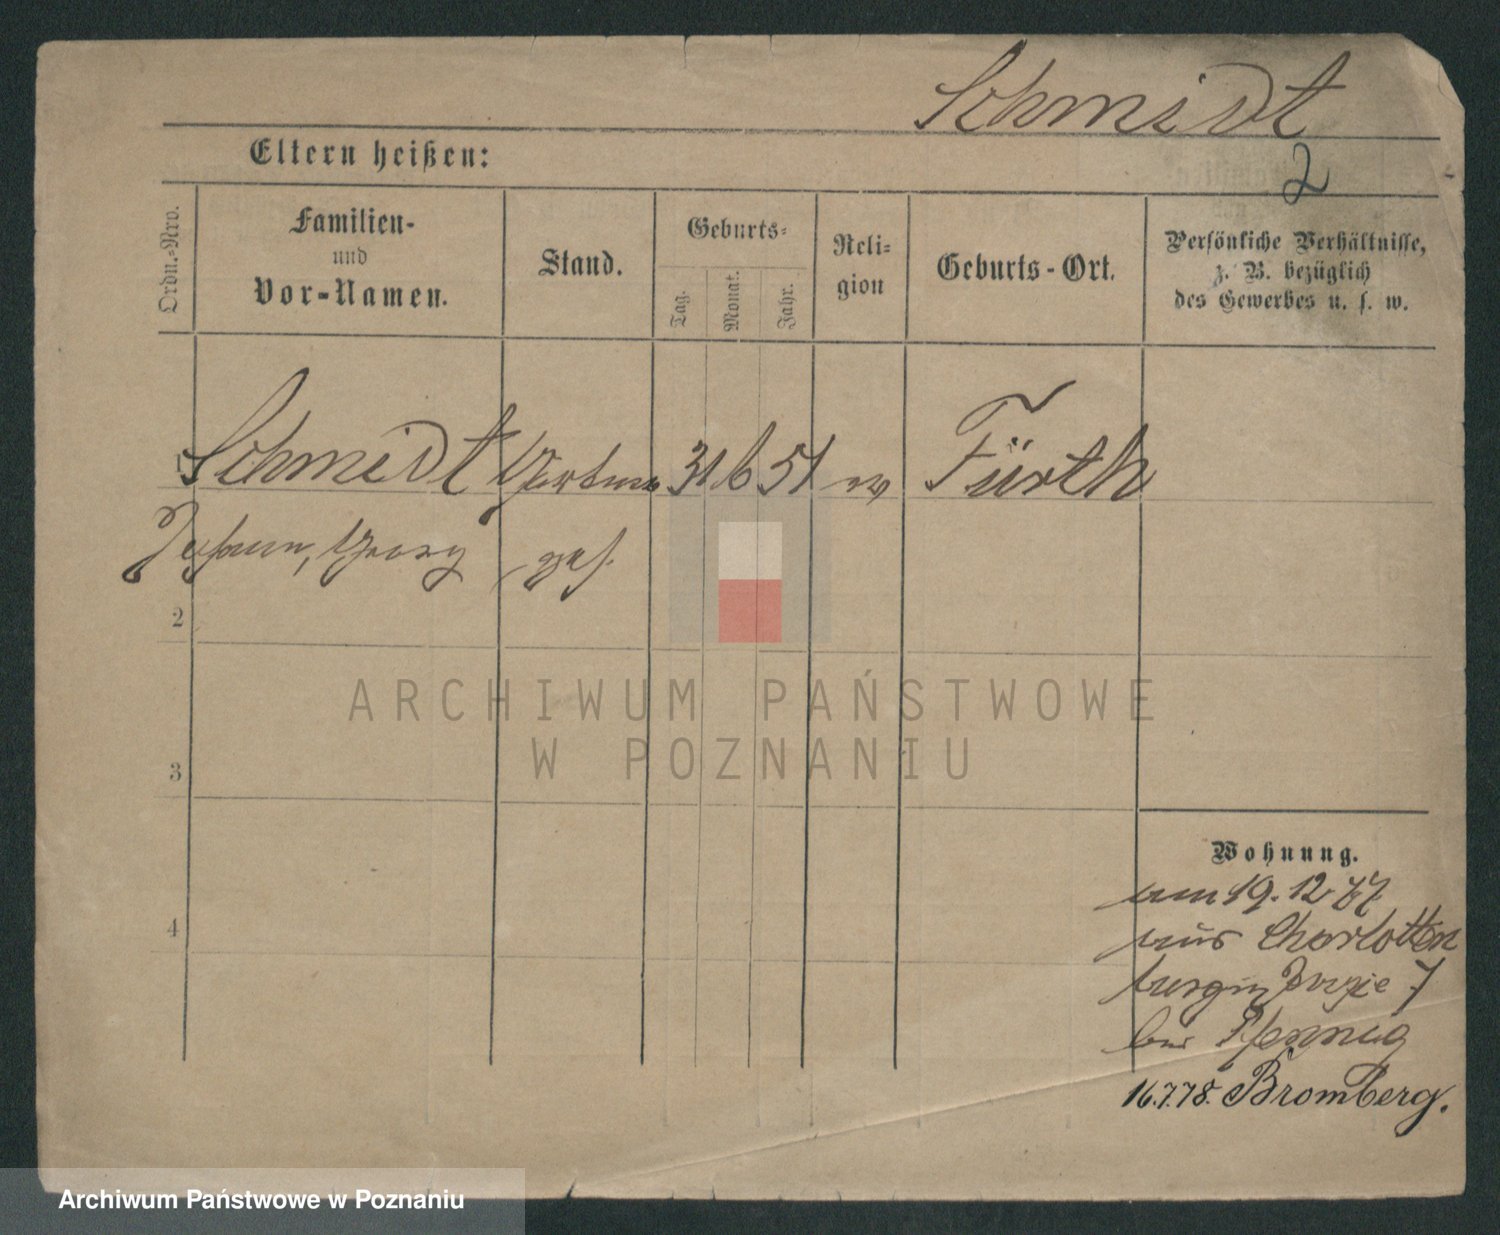 Schmidt
2
Eltern heißen:
Ordn.-Nro.
Familien-
und
Vor-Namen.
Stand.
Geburts-
Tag.
Monat.
Jahr.
Reli-
gion
Geburts-Ort.
Persönliche Verhältnisse,
z. B. bezüglich
des Gewerbes u. s. w.
1
Schmidt 31 6 51 Fürth
Johann, Georg
2
3
4
ARCHIWUM PAŃSTWOWE
W POZNANIU
Wohnung.
am 19.12.77
aus Charlotten
burg in 7
bei Pfennig
16.7.78. Bromberg.
Archiwum Państwowe w Poznaniu